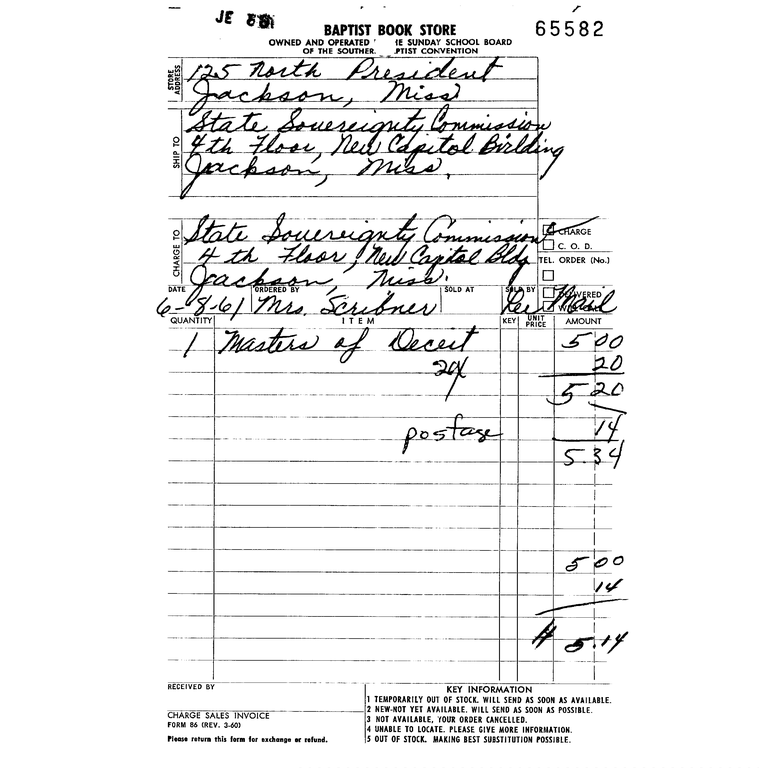 JE
BAPTIST BOOK STORE
65582
OWNED AND OPERATED HE SUNDAY SCHOOL BOARD
OF THE SOUTHER PTIST CONVENTION
STORE ADDRESS
125 North President
Jackson, Miss
SHIP TO
State Sovereignty Commission
4th Floor, New Capitol Building
Jackson, Miss.
CHARGE TO
State Sovereignty Commission
4th Floor, New Capitol Bldg
Jackson, Miss.
CHARGE
C. O. D.
TEL. ORDER (No.)
DELIVERED
DATE ORDERED BY SOLD AT SOLD BY
6-8-61 Mrs. Scribner Mail
QUANTITY ITEM KEY UNIT PRICE AMOUNT
1 Masters of Deceit 5 00
20
5 20
postage 14
5.34
5 00
14
5.14
RECEIVED BY
CHARGE SALES INVOICE
FORM 86 (REV. 3-60)
Please return this form for exchange or refund.
KEY INFORMATION
1 TEMPORARILY OUT OF STOCK. WILL SEND AS SOON AS AVAILABLE.
2 NEW-NOT YET AVAILABLE. WILL SEND AS SOON AS POSSIBLE.
3 NOT AVAILABLE, YOUR ORDER CANCELLED.
4 UNABLE TO LOCATE. PLEASE GIVE MORE INFORMATION.
5 OUT OF STOCK. MAKING BEST SUBSTITUTION POSSIBLE.